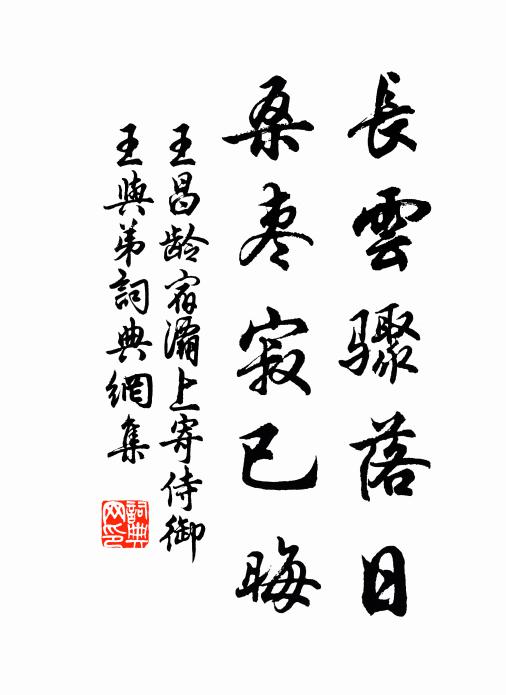 長雲驟落日
桑棗寂已晦
王昌齡宿灞上寄侍御
王與弟詞典網集
詞典
网印